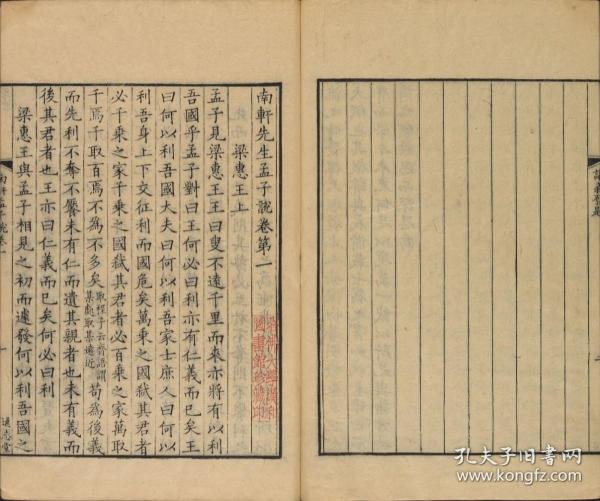 南軒先生孟子說卷第一
梁惠王上
孟子見梁惠王王曰叟不遠千里而來亦將有以利
吾國乎孟子對曰王何必曰利亦有仁義而已矣王
曰何以利吾國大夫曰何以利吾家士庶人曰何以
利吾身上下交征利而國危矣萬乘之國弒其君者
必千乘之家千乘之國弒其君者必百乘之家萬取
千焉千取百焉不為不多矣
取程子云齊語謂
某處取某遠近
苟為後義
而先利不奪不饜未有仁而遺其親者也未有義而
後其君者也王亦曰仁義而已矣何必曰利
梁惠王與孟子相見之初而遽發何以利吾國之
南軒孟子說卷一
一
通志堂
孔夫子旧书网
www.kongfz.com